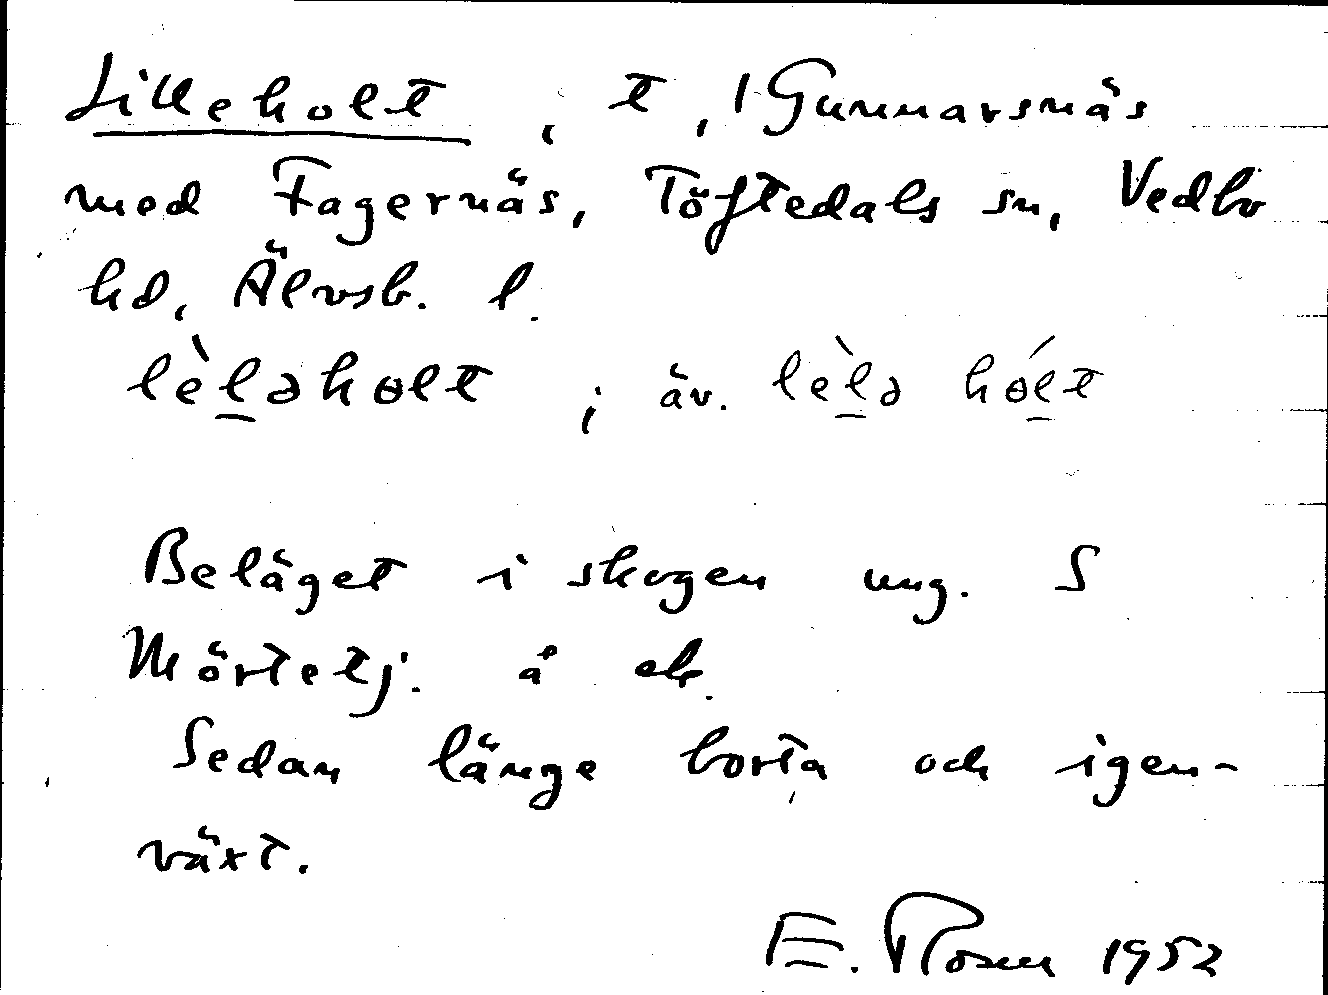 Lilleholt, t, 1 Gunnarsnäs
med Fagernäs, Töftedals sn, Vedbo
hd, Älvsb. l.
lèl̠əhɵlt ; äv. lèl̠ə hɵ́l̠t
Beläget i skogen ung. S
Mörtetj. å ek.
Sedan länge borta och igen-
växt.
E. Rosen 1952